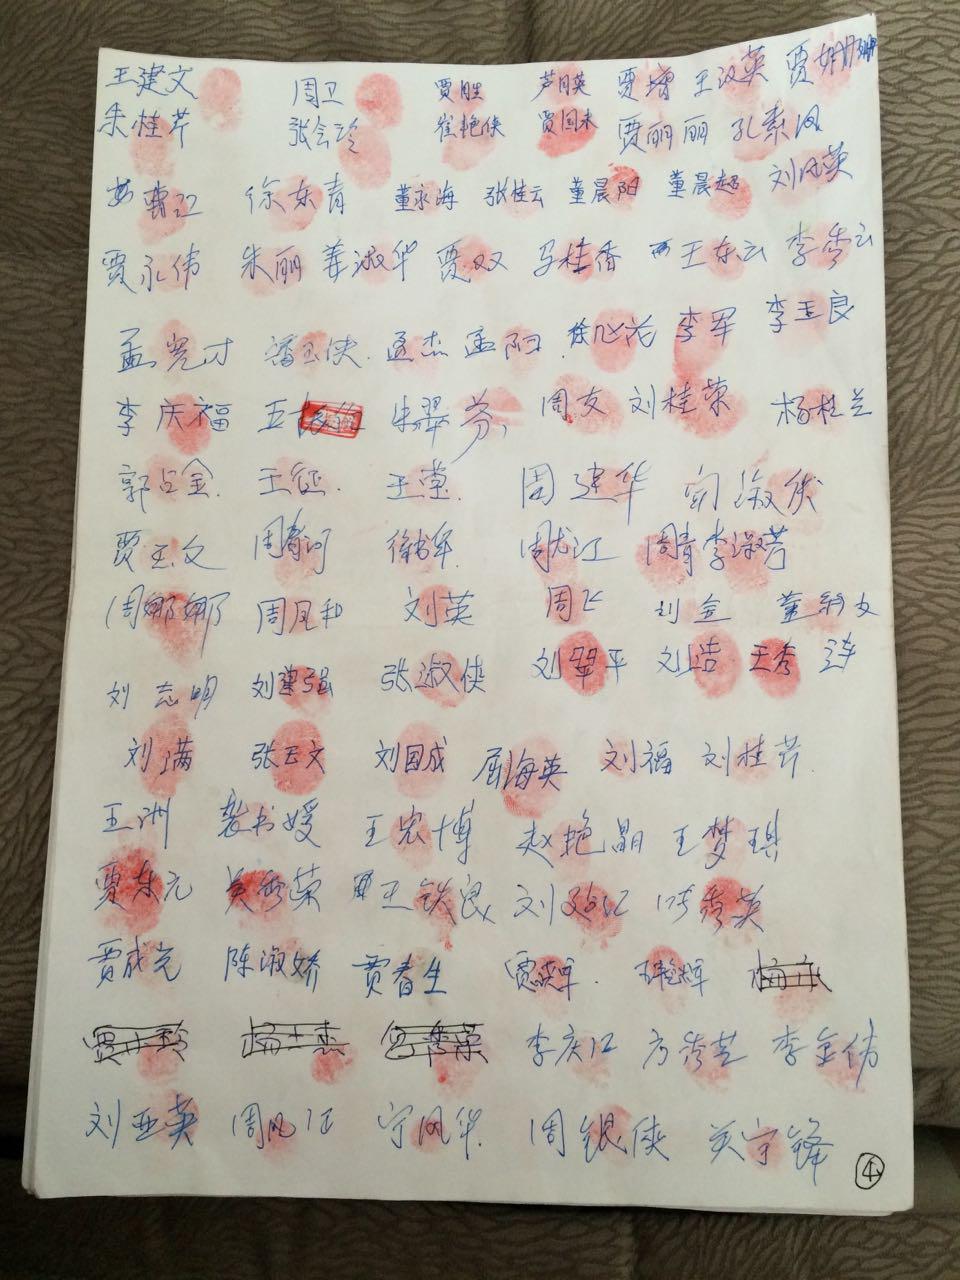 王建文 周卫 贾胜 芦月英 贾增 王汉英 贾姗姗
朱桂芹 张会玲 崔艳侠 贾国来 贾丽丽 孔素凤
徐东青 董永海 张桂云 董晨阳 董晨超 刘凤英
贾永伟 朱丽 姜淑华 贾双 马桂香 王东云 李秀云
孟宪才 潘玉侠 孟杰 孟阳 李军 李玉良
李庆福 朱翠芬 周友 刘桂荣 杨桂兰
郭占金 王征 王莹 周建华 淑侠
贾玉文 周春河 徐书军 周龙江 周青 李淑芳
周娜娜 周凤和 刘英 周飞 刘金
刘志明 刘建强 张淑侠 刘翠平 刘浩 王秀连
刘满 张玉文 刘国成 屈海英 刘福 刘桂芹
王洲 裴书媛 王宏博 赵艳晶 王梦琪
贾东元 吴秀荣 王铁良 刘 陈秀英
贾成元 陈淑娇 贾春生 贾洪军
李庆江 方秀芝 李金伟
刘亚英 周凤江 宁凤华 周银侠 关宇锋
④